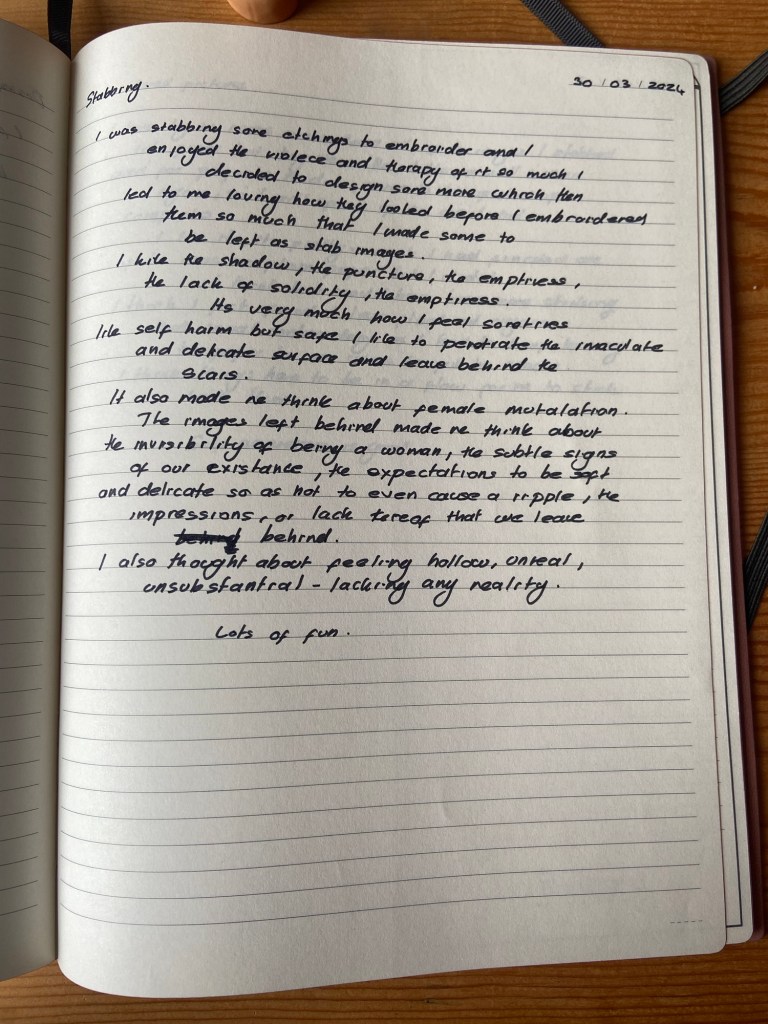 30 / 03 / 2024
Stabbing.
I was stabbing some etchings to embroider and I
enjoyed the violece and therapy of it so much I
decided to design some more which then
led to me loving how they looked before I embroidered
them so much that I made some to
be left as stab images.
I like the shadow, the puncture, the emptiness,
the lack of solidity, the emptiness.
Its very much how I feel sometimes
like self harm but safe I like to penetrate the imaculate
and delicate surface and leave behind the
scars.
It also made me think about female mutalation.
The images left behind made me think about
the invisibility of being a woman, the subtle signs
of our existance, the expectations to be soft
and delicate so as not to even cause a ripple, the
impressions, or lack thereof that we leave
behind.
I also thought about feeling hollow, unreal,
unsubstantial - lacking any reality.
Lots of fun.